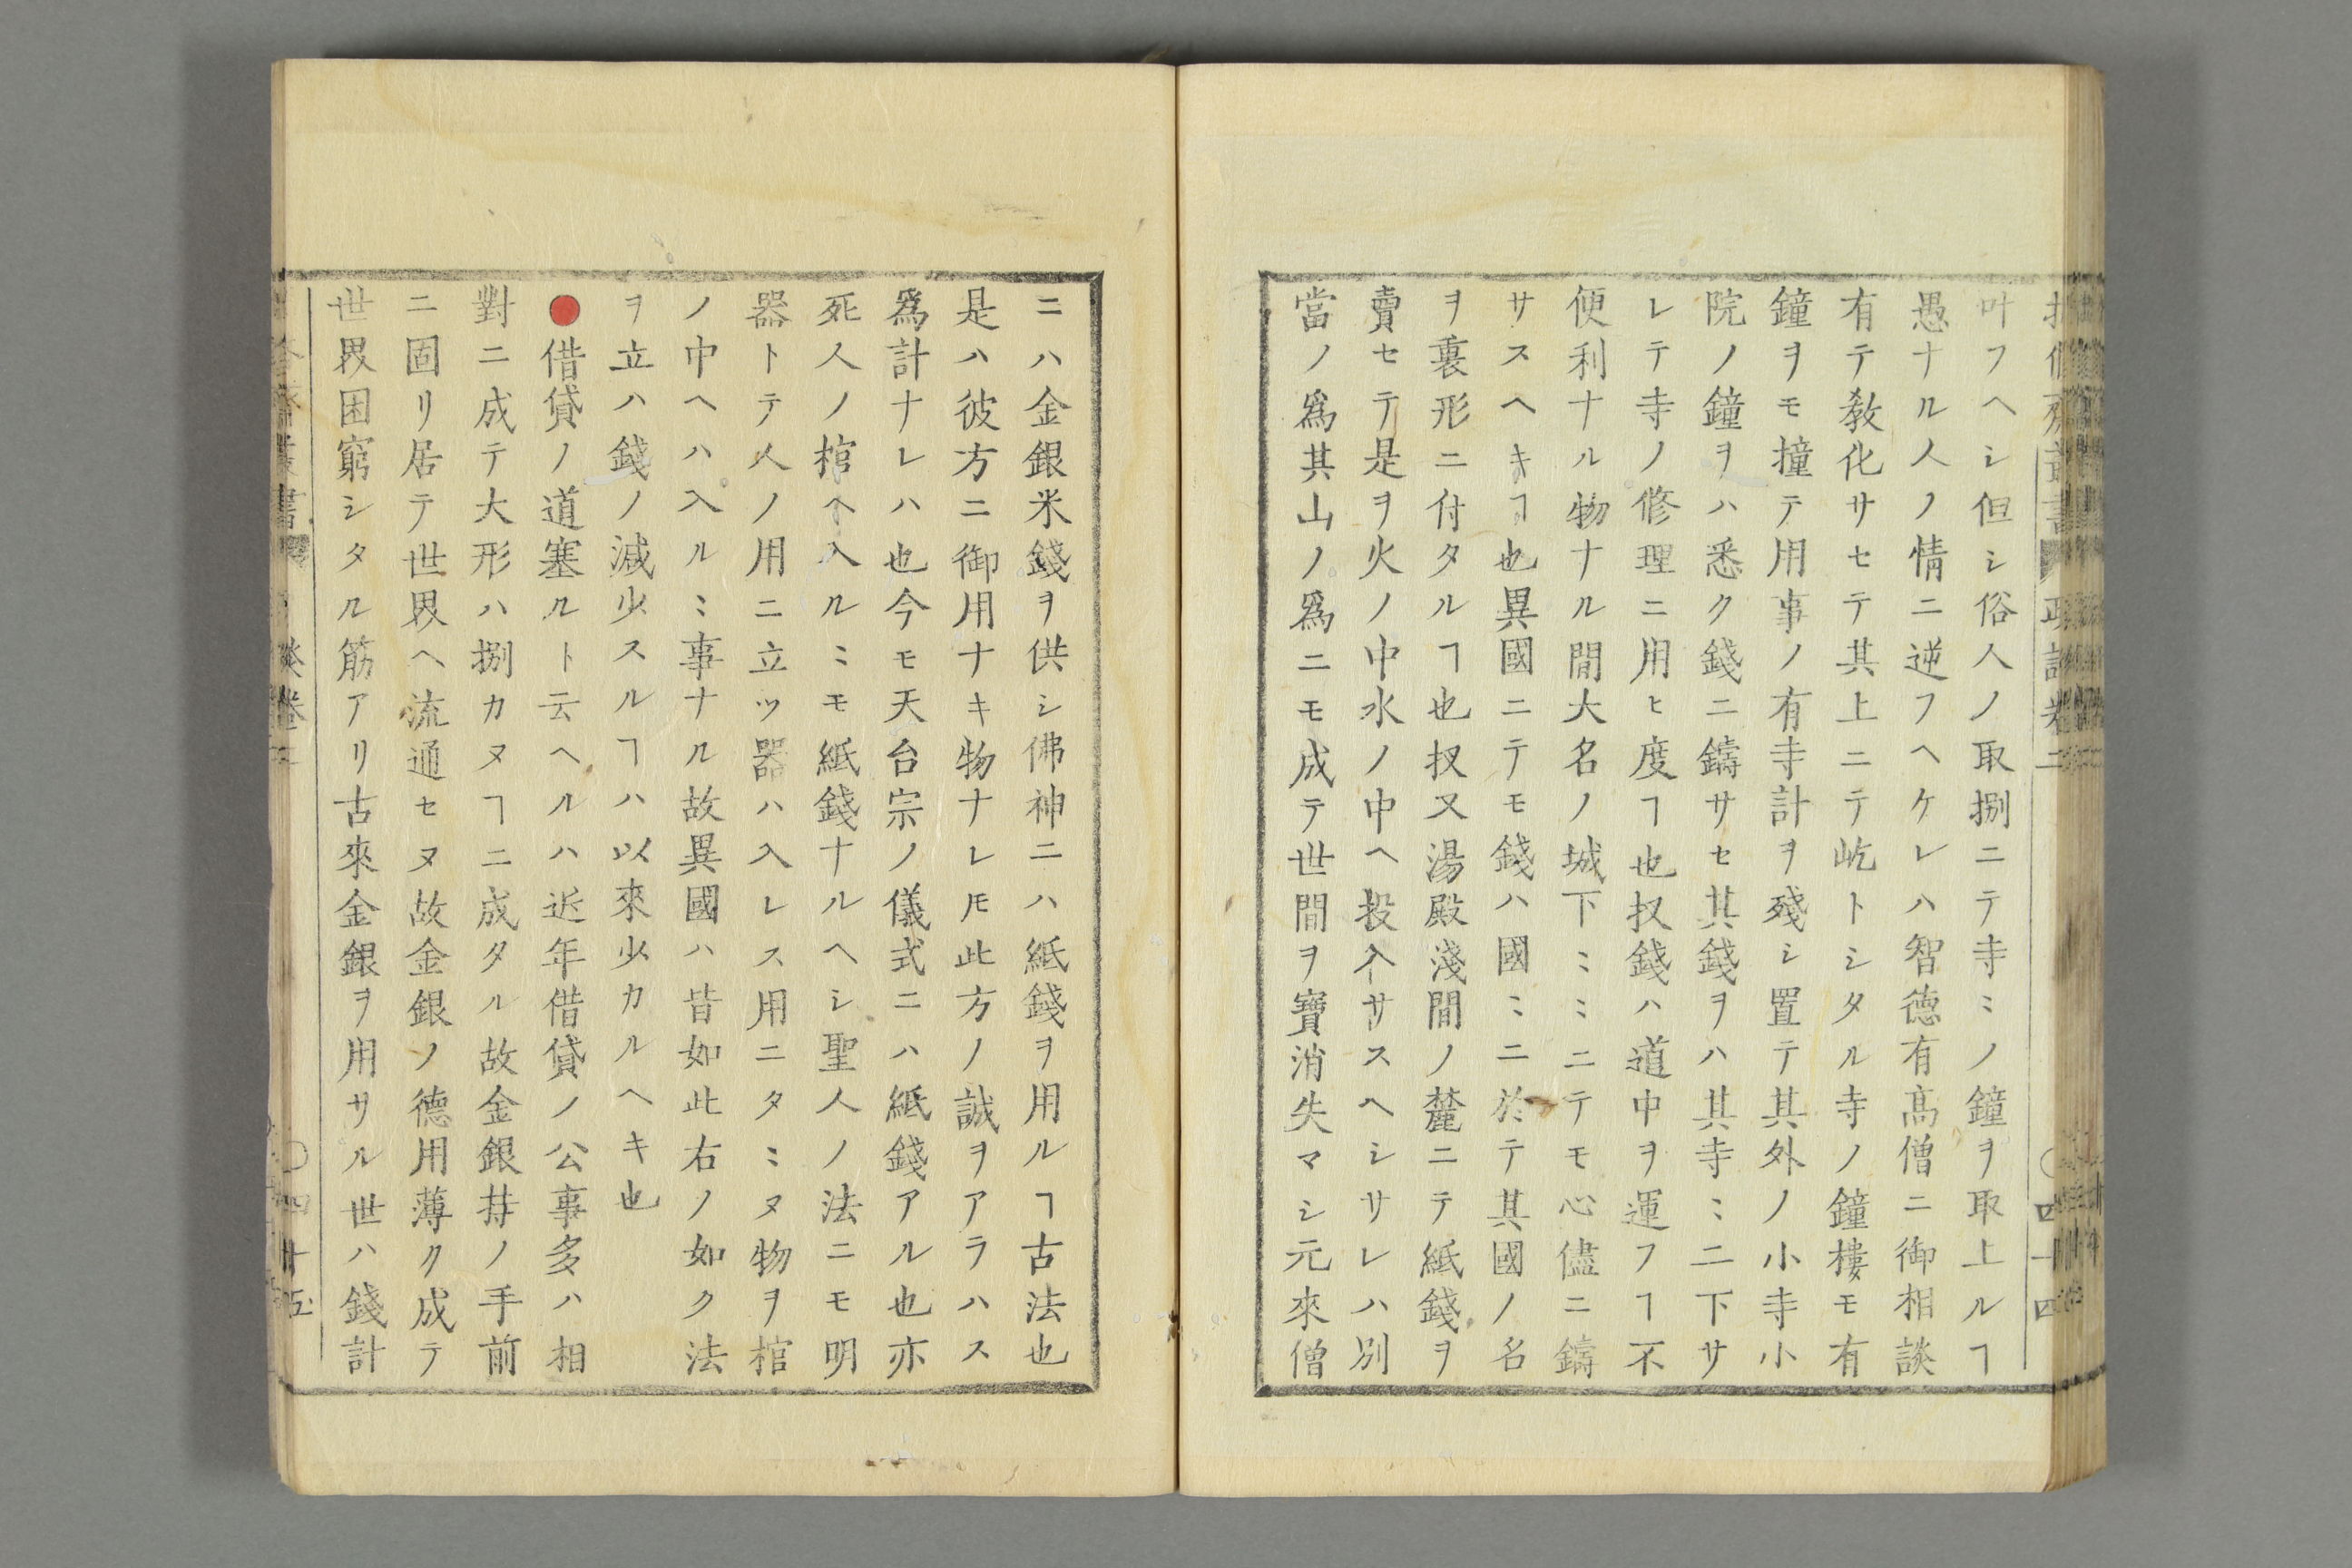 叶フヘシ但シ俗人ノ取捌ニテ寺〻ノ鐘ヲ取上ルヿ
愚ナル人ノ情ニ逆フヘケレハ智德有髙僧ニ御相談
有テ敎化サセテ其上ニテ屹トシタル寺ノ鐘樓モ有
鐘ヲモ撞テ用事ノ有寺計ヲ殘シ置テ其外ノ小寺小
院ノ鐘ヲハ悉ク錢ニ鑄サセ其錢ヲハ其寺〻ニ下サ
レテ寺ノ修理ニ用ヒ度ヿ也扠錢ハ道中ヲ運フヿ不
便利ナル物ナル間大名ノ城下〻〻ニテモ心儘ニ鑄
サスヘキヿ也異國ニテモ錢ハ國〻ニ於テ其國ノ名
ヲ裏形ニ付タルヿ也扠又湯殿淺間ノ麓ニテ紙錢ヲ
賣セテ是ヲ火ノ中水ノ中ヘ投入サスヘシサレハ別
當ノ爲其山ノ爲ニモ成テ世間ヲ寶消失マシ元來僧
ニハ金銀米錢ヲ供シ佛神ニハ紙錢ヲ用ルヿ古法也
是ハ彼方ニ御用ナキ物ナレ𪜈此方ノ誠ヲアラハス
爲計ナレハ也今モ天台宗ノ儀式ニハ紙錢アル也亦
死人ノ棺ヘ入ル〻モ紙錢ナルヘシ聖人ノ法ニモ明
器トテ人ノ用ニ立ツ器ハ入レス用ニタ〻ヌ物ヲ棺
ノ中ヘハ入ル〻事ナル故異國ハ昔如此右ノ如ク法
ヲ立ハ錢ノ減少スルヿハ以來少カルヘキ也
●借貸ノ道塞ルト云ヘルハ近年借貸ノ公事多ハ相
對ニ成テ大形ハ捌カヌヿニ成タル故金銀持ノ手前
ニ固リ居テ世界ヘ流通セヌ故金銀ノ德用薄ク成テ
世界困窮シタル筋アリ古來金銀ヲ用サル世ハ錢計